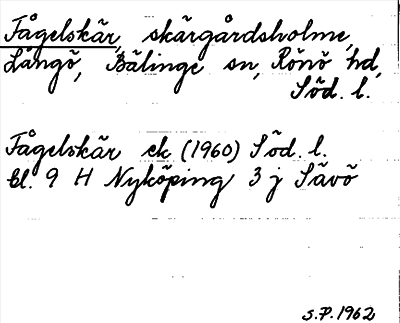 Fågelskär, skärgårdsholme,
Långö, Bälinge sn, Rönö hd,
Söd. l.
Fågelskär ek (1960) Söd. l.
bl. 9 H Nyköping 3 j Sävö
S.P. 1962